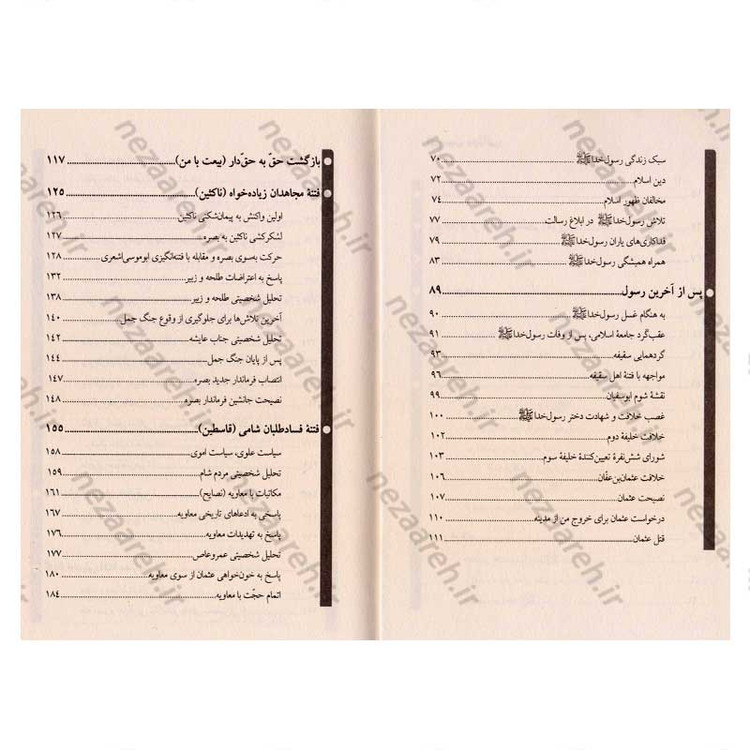 سبک زندگی رسول‌خداﷺ ........ ۷۰
دین اسلام ........ ۷۲
مخالفان ظهور اسلام ........ ۷۴
تلاش رسول‌خداﷺ در ابلاغ رسالت ........ ۷۷
فداکاری‌های یاران رسول‌خداﷺ ........ ۷۹
همراه همیشگی رسول‌خداﷺ ........ ۸۳
پس از آخرین رسول ........ ۸۹
به هنگام غسل رسول‌خداﷺ ........ ۹۰
عقب‌گرد جامعهٔ اسلامی، پس از وفات رسول‌خداﷺ ........ ۹۱
گردهمایی سقیفه ........ ۹۳
مواجهه با فتنهٔ اهل سقیفه ........ ۹۶
نقشهٔ شوم ابوسفیان ........ ۹۹
غصب خلافت و شهادت دختر رسول‌خداﷺ ........ ۱۰۰
خلافت خلیفهٔ دوم ........ ۱۰۲
شورای شش‌نفرهٔ تعیین‌کنندهٔ خلیفهٔ سوم ........ ۱۰۳
خلافت عثمان‌بن‌عفّان ........ ۱۰۶
نصیحت عثمان ........ ۱۰۷
درخواست عثمان برای خروج من از مدینه ........ ۱۱۰
قتل عثمان ........ ۱۱۱
بازگشت حقّ به حقّ‌دار (بیعت با من) ........ ۱۱۷
فتنهٔ مجاهدان زیاده‌خواه (ناکثین) ........ ۱۲۵
اولین واکنش به پیمان‌شکنی ناکثین ........ ۱۲۶
لشکرکشی ناکثین به بصره ........ ۱۲۷
حرکت به‌سوی بصره و مقابله با فتنه‌انگیزی ابوموسی‌اشعری ........ ۱۲۸
پاسخ به اعتراضات طلحه و زبیر ........ ۱۳۲
تحلیل شخصیتی طلحه و زبیر ........ ۱۳۸
آخرین تلاش‌ها برای جلوگیری از وقوع جنگ جمل ........ ۱۴۰
تحلیل شخصیتی جناب عایشه ........ ۱۴۲
پس از پایان جنگ جمل ........ ۱۴۴
انتصاب فرماندار جدید بصره ........ ۱۴۷
نصیحت جانشین فرماندار بصره ........ ۱۴۸
فتنهٔ فسادطلبان شامی (قاسطین) ........ ۱۵۵
سیاست علوی، سیاست اموی ........ ۱۵۸
تحلیل شخصیتی مردم شام ........ ۱۵۹
مکاتبات با معاویه (نصایح) ........ ۱۶۱
پاسخی به ادعاهای تاریخی معاویه ........ ۱۶۷
پاسخ به تهدیدات معاویه ........ ۱۷۶
تحلیل شخصیتی عمروعاص ........ ۱۷۷
پاسخ به خون‌خواهی عثمان از سوی معاویه ........ ۱۸۰
اتمام حجّت با معاویه ........ ۱۸۴
nezaareh.ir